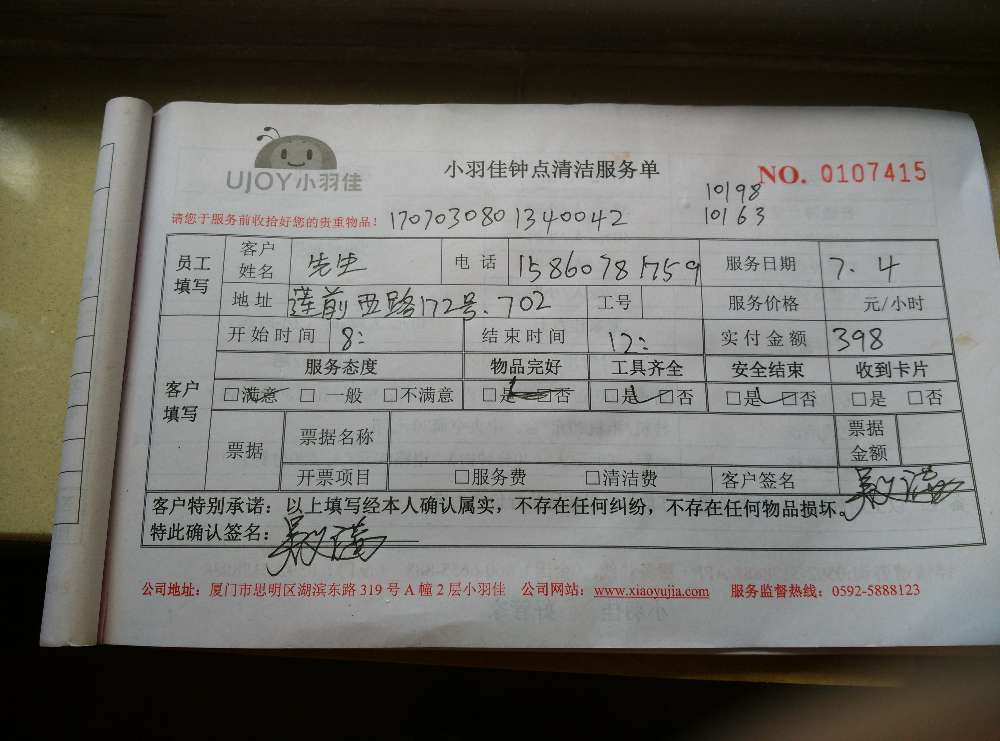 UJOY小羽佳
小羽佳钟点清洁服务单
NO. 0107415
10198
10163
请您于服务前收拾好您的贵重物品！ 1707030801340042
员工填写 客户姓名 先生 电话 15860781759 服务日期 7.4
地址 莲前西路172号.702 工号 服务价格 元/小时
客户填写 开始时间 8: 结束时间 12: 实付金额 398
服务态度 物品完好 工具齐全 安全结束 收到卡片
□满意 □一般 □不满意 □是 □否 □是 □否 □是 □否 □是 □否
票据 票据名称 票据金额
开票项目 □服务费 □清洁费 客户签名
客户特别承诺：以上填写经本人确认属实，不存在任何纠纷，不存在任何物品损坏。
特此确认签名：
公司地址：厦门市思明区湖滨东路319号A幢2层小羽佳 公司网站：www.xiaoyujia.com 服务监督热线：0592-5888123